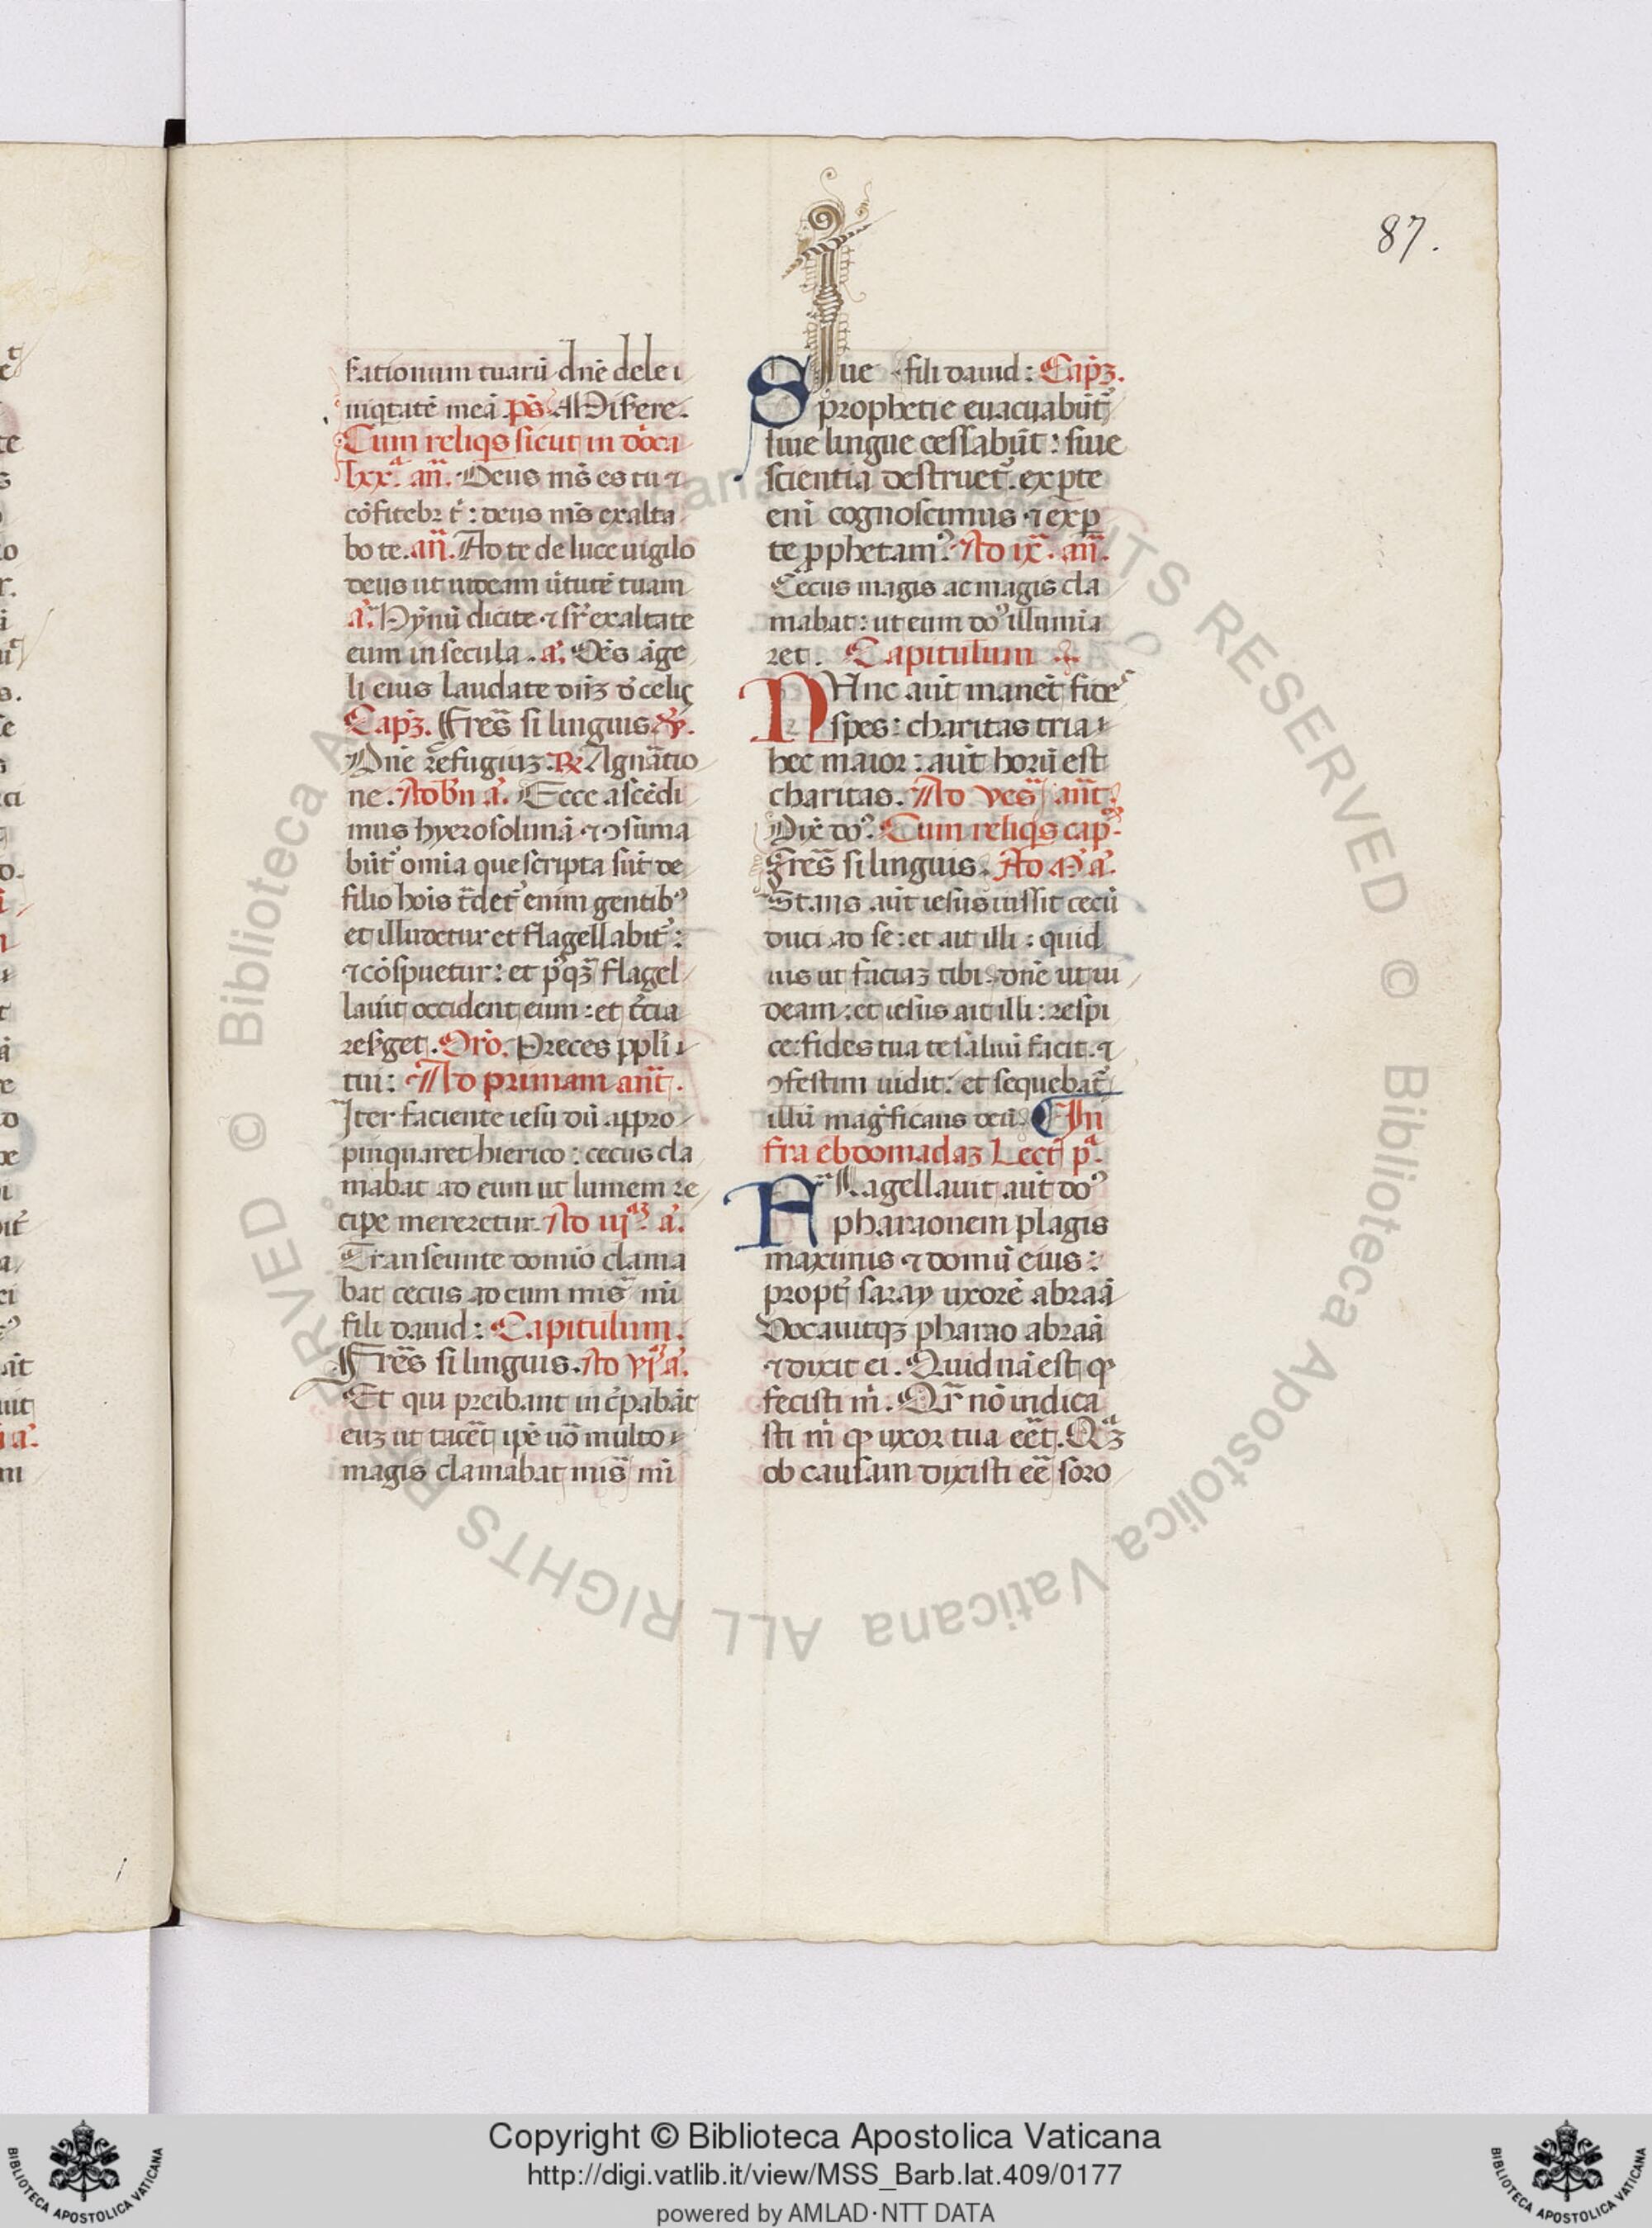 87.
serationum tuarū dn̄e dele i
niq̇tatē meā. p̄s. Misere.
Cum reliq̇s sicut in dōca
lxx.ª an̄. Deus m̄s es tu ⁊
cōfitebꝛ t̄: deus m̄s exalta
bo te. an̄. Ad te de luce uigilo
deus ut uideam ūtutē tuam
a. Hȳnū dicite ⁊ sr̄ exaltate
eum in secula. a. Oēs āge
li eius laudate dn̄ꝫ d̄ celis
Capꝫ. Fr̄es si linguis ⁊c.
Dn̄e refugiuꝫ. ℟. Agnātio
ne. Ad bn̄ a. Ecce ascēdi
mus hyerosolimā ⁊ ꝯsuma
būt᷑ omia que scripta sūt de
filio hoīs t̄det᷑ enim gentibꝰ
et illudetur et flagellabit᷑:
⁊ cōspuetur: et pꝰqꝫ flagel
lauīt occident eum: et t̄cia
resᷓget. Orō. Preces ppl̄i
tui: Ad primam an̄t.
Iter faciente iesu dū appro
pinquaret hierico: cecus cla
mabat ad eum ut lumem re
cipe mereretur. Ad iijᵃᵐ a.
Transeunte domīo clama
bat cecus ad eum mis̄ mī
fili dauid: Capitulum.
Fr̄es si linguis. Ad vjᵃ a.
Et qui preibant inc̄pabāt
euꝫ ut tacēt ip̄e ūo multo
magis clamabat mis̄ mī
Siue fili dauid: Capꝫ.
prophetie euacuabūt᷑
siue lingue cessabūt: siue
scientia destruet᷑. ex pte
eni cognoscimus ⁊ ex p
te pphetamꝰ. Ad ix̄. an̄.
Cecus magis ac magis cla
mabat: ut eum doꝰ illumīa
ret. Capitulum
NUnc aūt manēt fides
spes: charitas tria
hec maior: aūt horū est
charitas. Ad ves̄ an̄t.
Dix̄ doꝰ. Cum reliq̇s capꝰ.
Fr̄es si linguis. Ad M̄ a.
Stans aūt iesus iussit cecū
duci ad se: et ait illi: quid
uis ut faciaꝫ tibi. dn̄e ut ui
deam: et iesus ait illi: respi
ce: fides tua te saluū facit. ⁊
ꝯfestim uidit: et sequebat᷑
illū mag̓ficans deū. In
fra ebdomadaꝫ Lect̄ pª.
Flagellauit aūt doꝰ
pharaonem plagis
maximis ⁊ domū eius:
propt᷑ saray uxorē abraā
Vocauitqꝫ pharao abraā
⁊ dixit ei. Quid nā est qꝫ
fecisti m̄. Qr̄ nō indica
sti m̄ qꝫ uxor tua eēt. Qªꝫ
ob causam dixisti eē soro
Copyright © Biblioteca Apostolica Vaticana
http://digi.vatlib.it/view/MSS_Barb.lat.409/0177
powered by AMLAD·NTT DATA